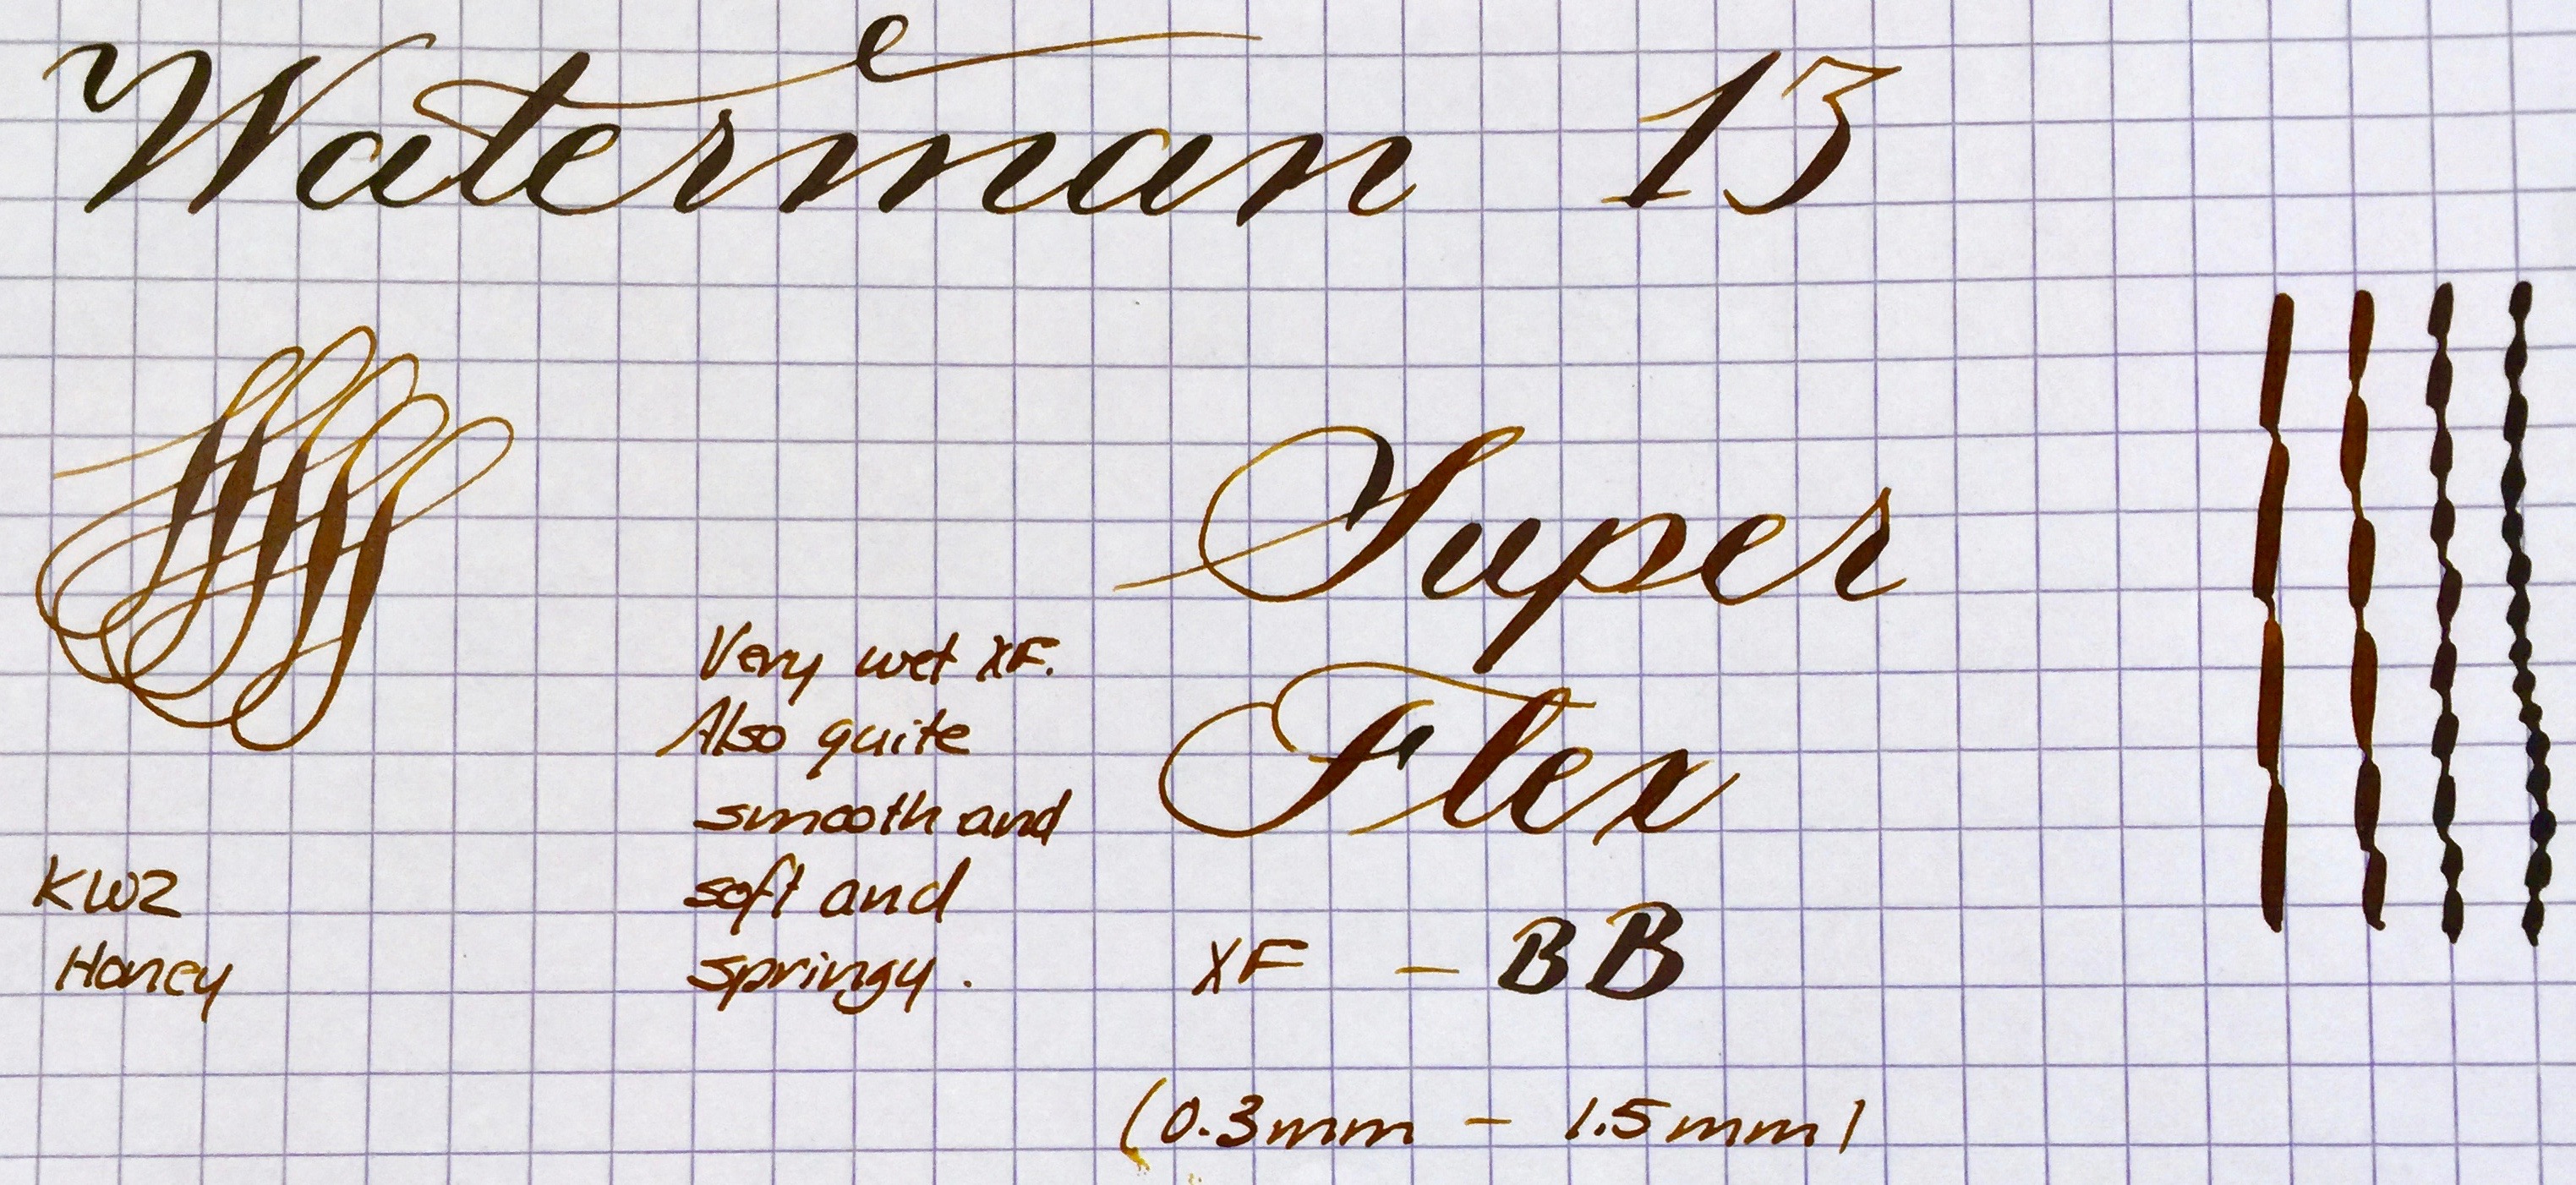 Waterman 13
Super
Flex
Very wet XF.
Also quite
smooth and
soft and
springy.
KWZ
Honey
XF - BB
(0.3mm - 1.5mm)